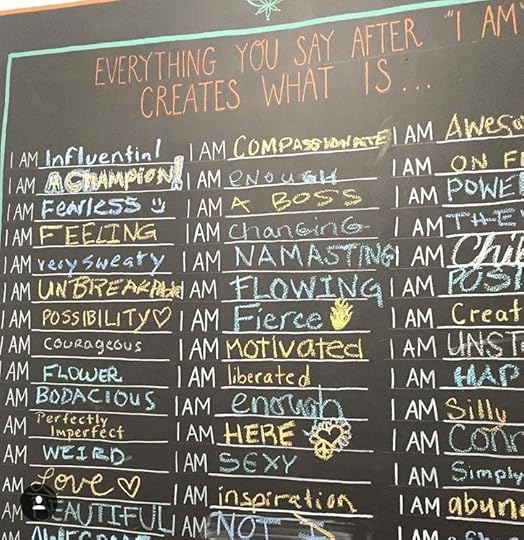 EVERYTHING YOU SAY AFTER "I AM"
CREATES WHAT IS...
I AM Influential
I AM A CHAMPION!
I AM Fearless
I AM FEELING
I AM very sweaty
I AM UNBREAKABLE
I AM POSSIBILITY
I AM courageous
I AM FLOWER
I AM BODACIOUS
I AM Perfectly
Imperfect
I AM WEIRD
I AM Love
AM BEAUTIFUL
I AM COMPASSIONATE
I AM enough
I AM A BOSS
I AM changing
I AM NAMASTING
I AM FLOWING
I AM Fierce
I AM Motivated
I AM liberated
I AM enough
I AM HERE
I AM SEXY
I AM inspiration
I AM NOT I
I AM Aweso
I AM ON F
I AM POWE
I AM THE
I AM Chil
I AM POSI
I AM Creat
I AM UNST
I AM HAP
I AM Silly
I AM Conn
I AM Simply
I AM abun